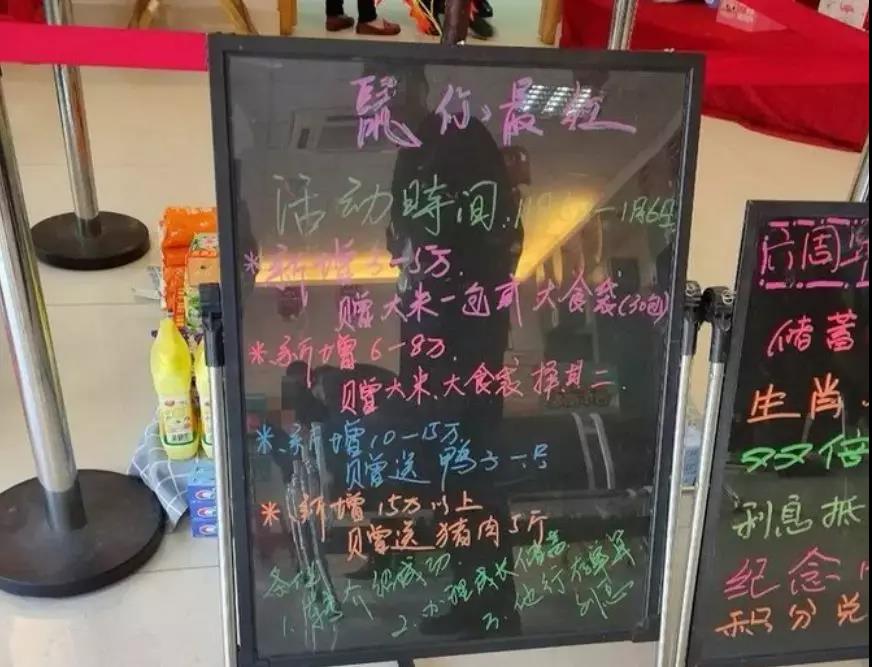 鼠你最红
活动時间:1月3号-1月6号
*新增3-5万.
赠大米一包或大食袋(30包)
*新增6-8万.
赠大米.大食袋择其二.
*新增10-15万.
赠送鸭子一号
*新增15万以上
赠送猪肉5斤
条件
1. 介绍成功. 2.办理成长储蓄 3.他行
利息
储蓄
生肖
双倍
利息抵
纪念
积分兑